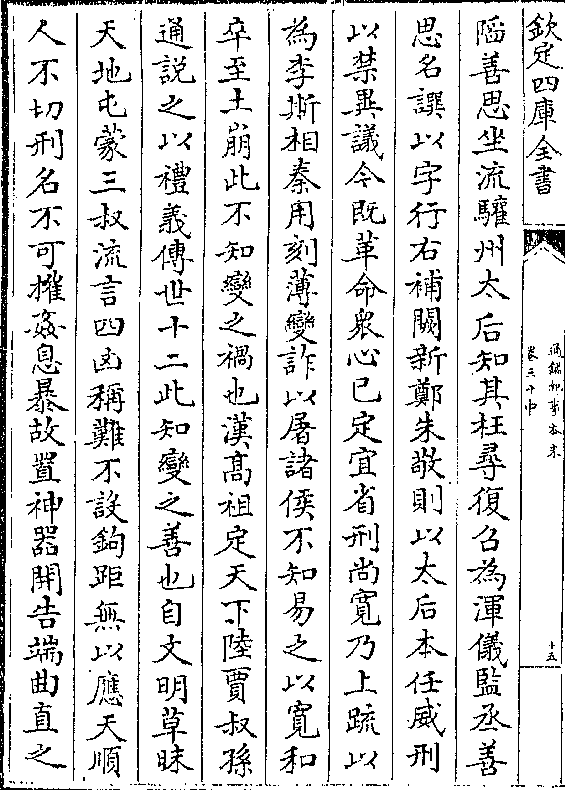 欽定四庫全書
通鑑紀事本末
卷三十中
十五
陷善思坐流驩州太后知其枉尋復召為渾儀監丞善
思名譔以字行右補闕新鄭朱敬則以太后本任威刑
以禁異議今既革命衆心已定宜省刑尚寛乃上疏以
為李斯相秦用刻薄變詐以屠諸侯不知易之以寛和
卒至土崩此不知變之禍也漢髙祖定天下陸賈叔孫
通説之以禮義傳世十二此知變之善也自文明草昧
天地屯蒙三叔流言四凶稱難不設鉤距無以應天順
人不切刑名不可摧姦息暴故置神器開告端曲直之